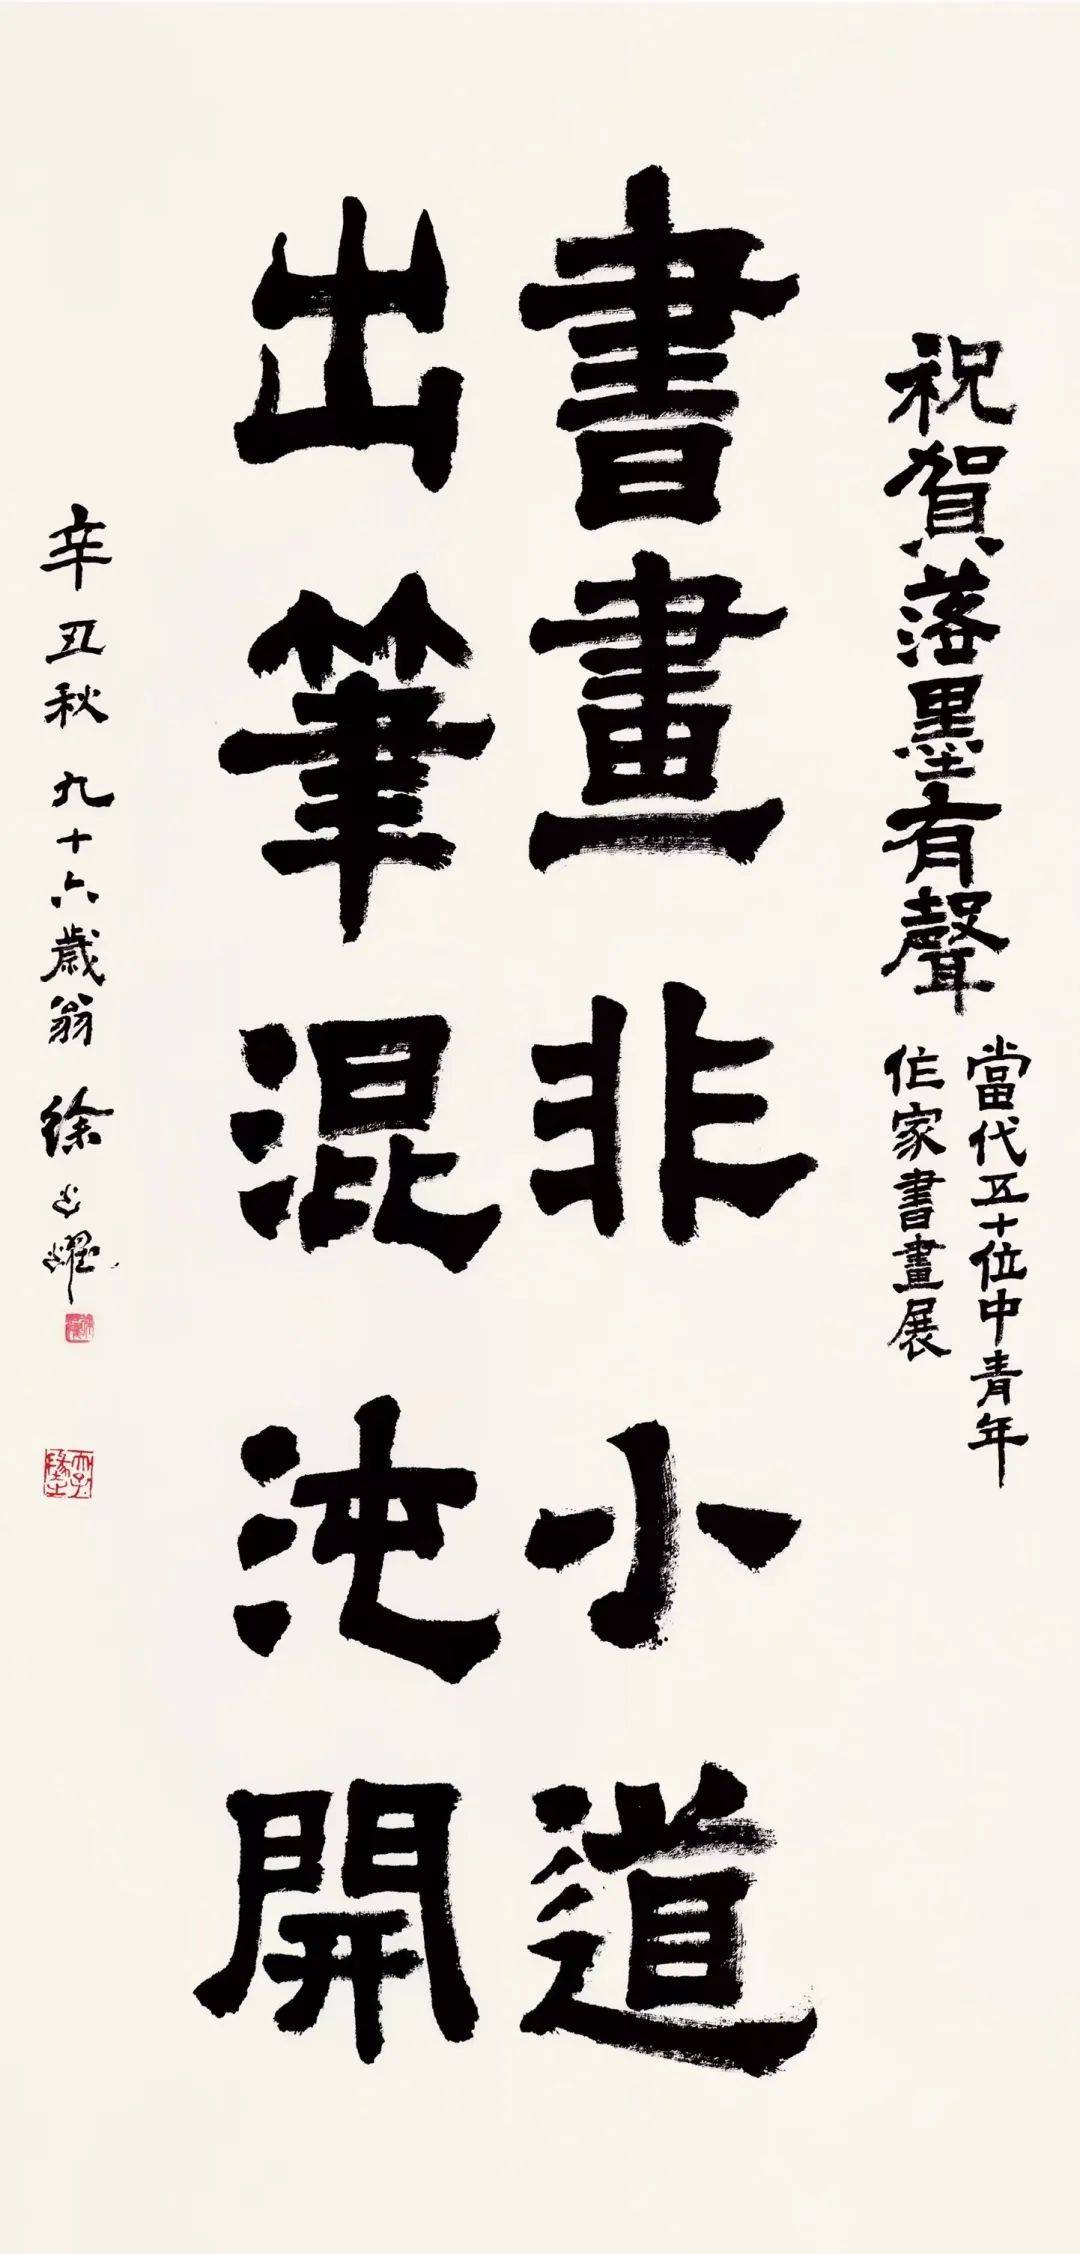 祝賀落墨有聲
當代五十位中青年
作家書畫展
書畫非小道
出筆混沌開
辛丑秋九十六歲翁徐